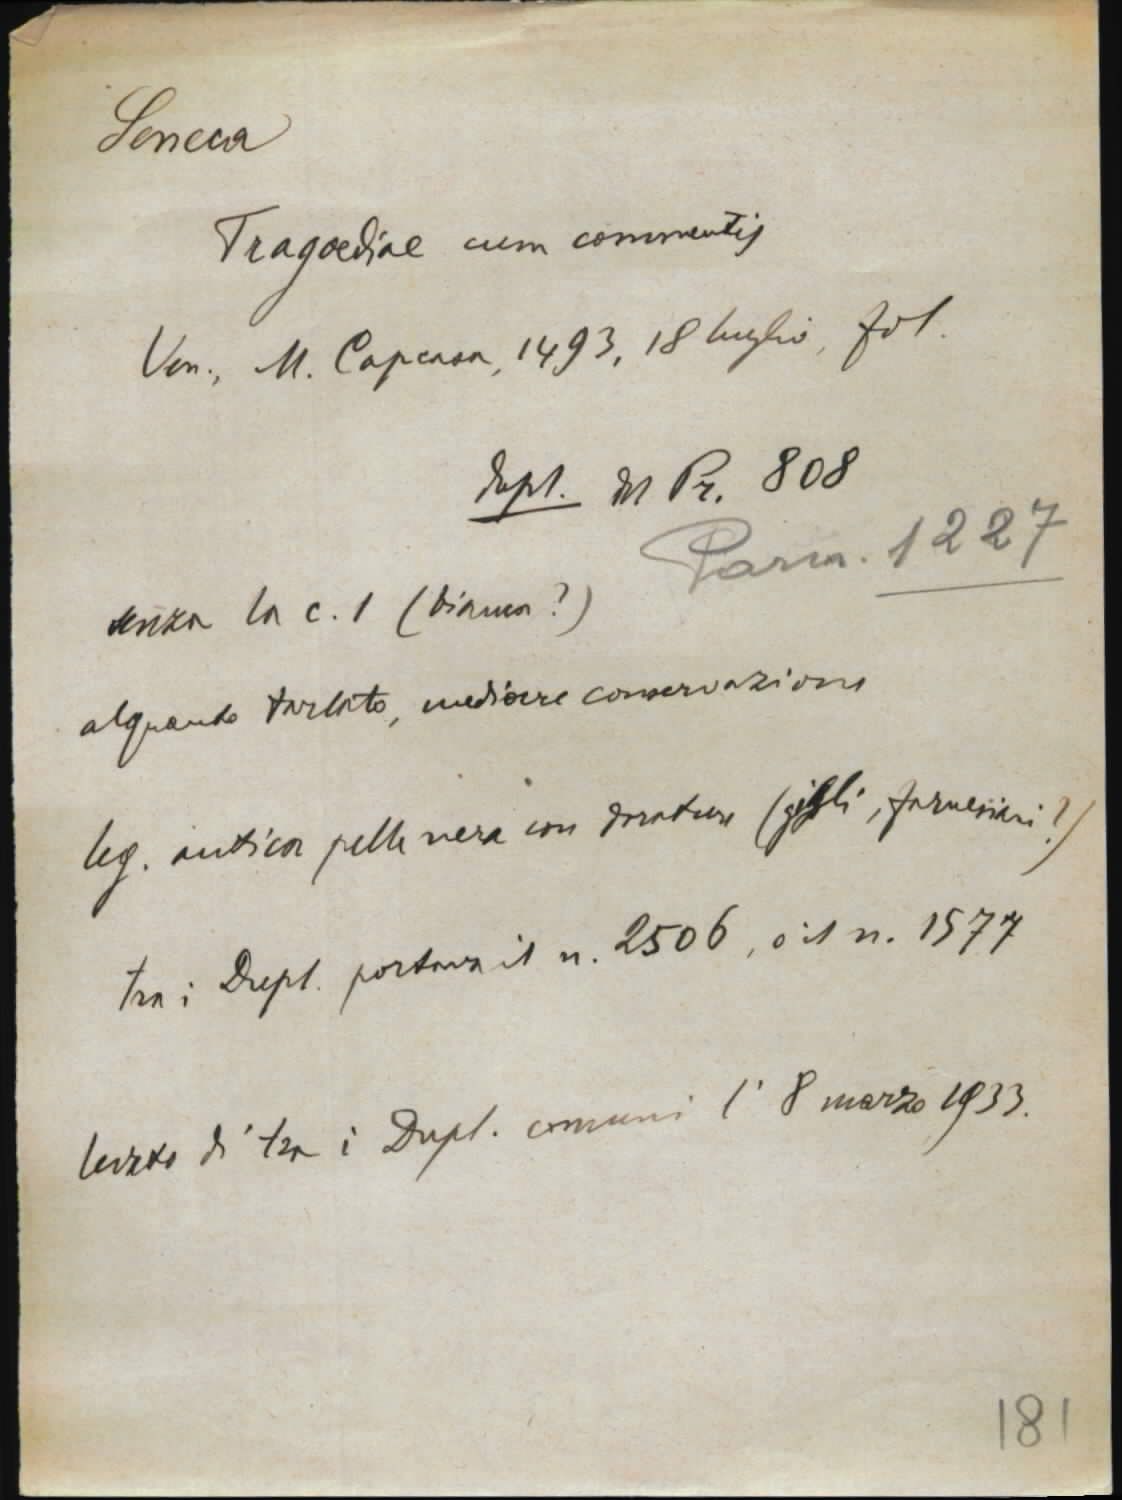 Seneca
Tragoediae cum commentis
Ven., M. Capcasa, 1493, 18 luglio, fol.
dupl. del Pr. 808
Parm. 1227
senza la c. 1 (bianca?)
alquanto tarlato, mediocre conservazione
leg. antica pelle nera con dorature (gigli, farnesiani?)
tra i Dupl. portava il n. 2506, o il n. 1577
levato di tra i Dupl. comuni l' 8 marzo 1933.
181